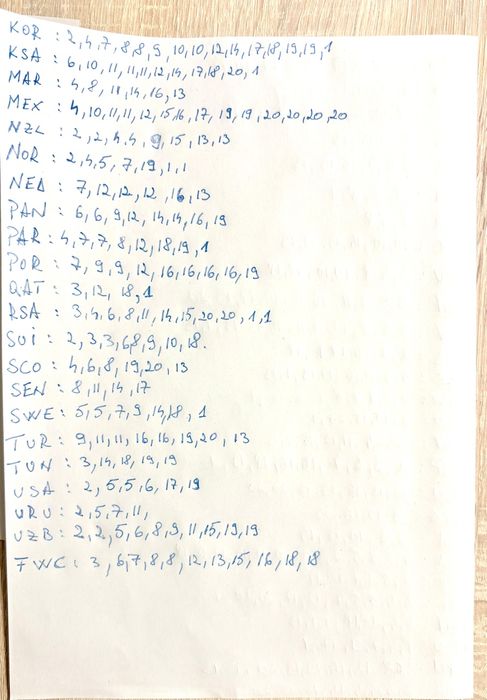 KOR : 2,4,7,8,8,9,10,10,12,14,17,18,19,19,1
KSA : 6,10,11,11,11,12,14,17,18,20,1
MAR : 4,8,11,14,16,13
MEX : 4,10,11,11,12,15,16,17,19,19,20,20,20,20
NZL : 2,2,4,4,9,15,13,13
NOR : 2,4,5,7,19,1,1
NED : 7,12,12,12,16,13
PAN : 6,6,9,12,14,14,16,19
PAR : 4,7,7,8,12,18,19,1
POR : 7,9,9,12,16,16,16,16,19
QAT : 3,12,18,1
RSA : 3,4,6,8,11,14,15,20,20,1,1
SUi : 2,3,3,6,8,9,10,18.
SCO : 4,6,8,19,20,13
SEN : 8,11,14,17
SWE : 5,5,7,9,14,18,1
TUR : 9,11,11,16,16,19,20,13
TUN : 3,14,18,19,19
USA : 2,5,5,6,17,19
URU : 2,5,7,11,
UZB : 2,2,5,6,8,9,11,15,19,19
FWC : 3,6,7,8,8,12,13,15,16,18,18